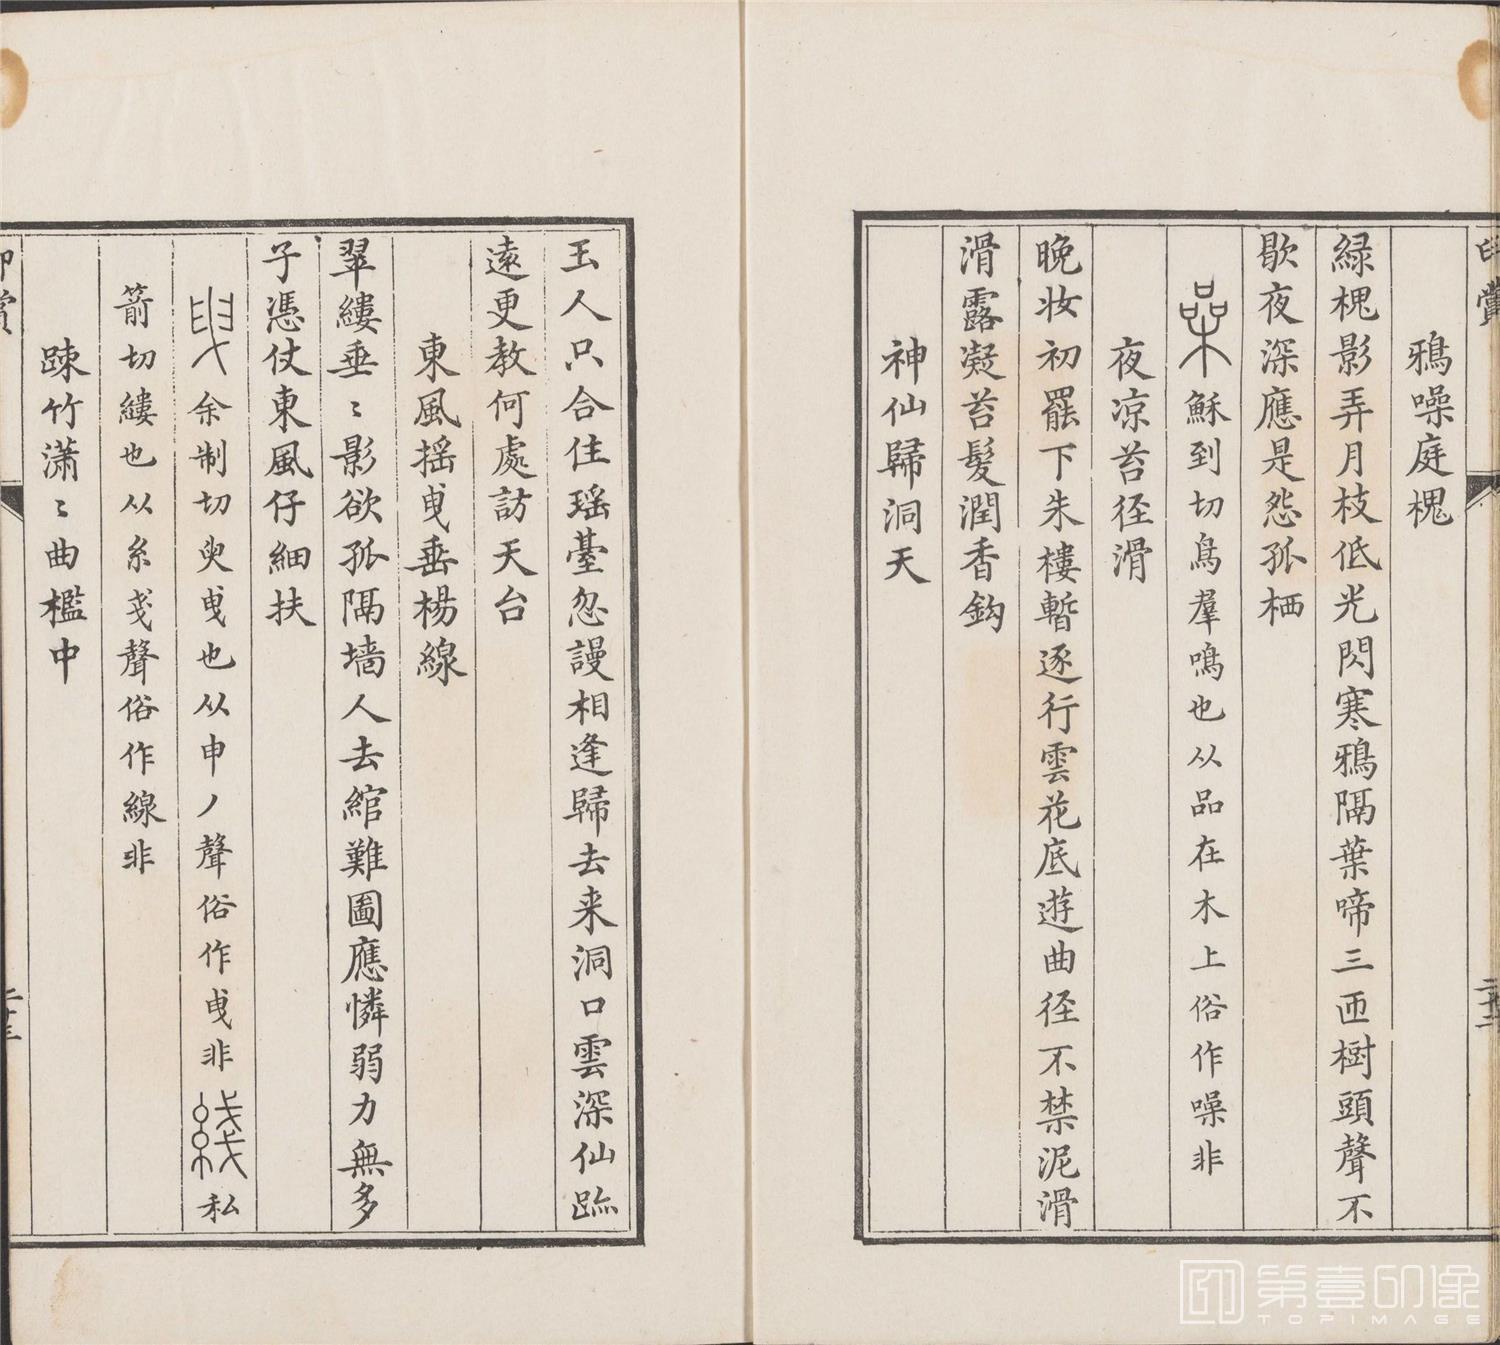 鴉噪庭槐
緑槐影弄月枝低光閃寒鴉隔葉啼三匝樹頭聲不
歇夜深應是怨孤栖
喿穌到切鳥羣鳴也从品在木上俗作噪非
夜凉苔径滑
晚妆初罷下朱樓暫逐行雲花底遊曲径不禁泥滑
滑露凝苔髮潤香鈎
神仙歸洞天
玉人只合住瑶臺忽謾相逢歸去来洞口雲深仙跡
遠更教何處訪天台
東風揺曳垂楊線
翠縷垂〻影欲孤隔墙人去綰難圖應憐弱力無多
子憑仗東風仔細扶
曳余制切臾曳也从申丿聲俗作曵非綫私
箭切縷也从糸戔聲俗作線非
踈竹潇〻曲檻中
二十二
二十三
第壹印像
TOPIMAGE